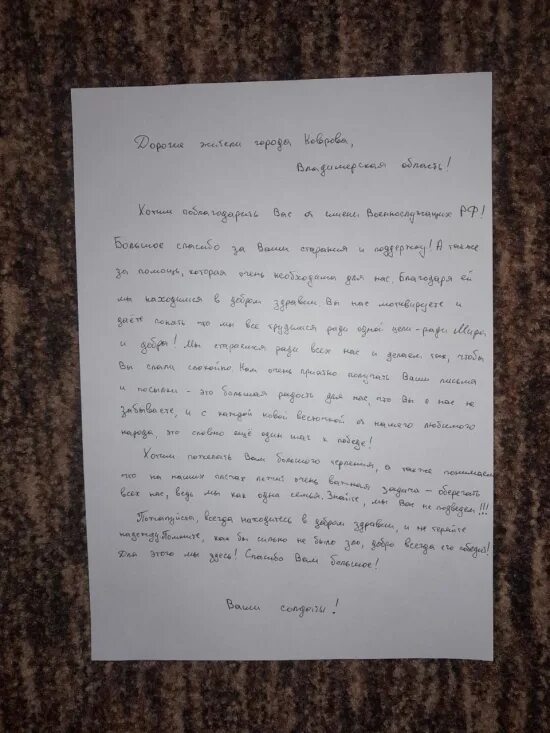 Дорогие жители города Коврова,
Владимирская область!
Хотим поблагодарить Вас от имени Военнослужащих РФ!
Большое спасибо за Ваши старания и поддержку! А также
за помощь, которая очень необходима для нас. Благодаря ей
мы находимся в добром здравии. Вы нас мотивируете и
даёте понять что мы все трудимся ради одной цели - ради Мира
и добра! Мы стараемся ради всех нас и делаем так, чтобы
Вы спали спокойно. Нам очень приятно получать Ваши письма
и посылки - это большая радость для нас, что Вы о нас не
забываете, и с каждой новой весточкой от нашего любимого
народа, это словно ещё один шаг к победе!
Хотим пожелать Вам большого терпения, а также понимаем
что на наших плечах лежит очень важная задача - оберегать
всех нас, ведь мы как одна семья. Знайте, мы Вас не подведем!!!
Пожалуйста, всегда находитесь в добром здравии, и не теряйте
надежду. Помните, как бы сильно не было зло, добро всегда его победит!
Для этого мы здесь! Спасибо Вам большое!
Ваши солдаты!